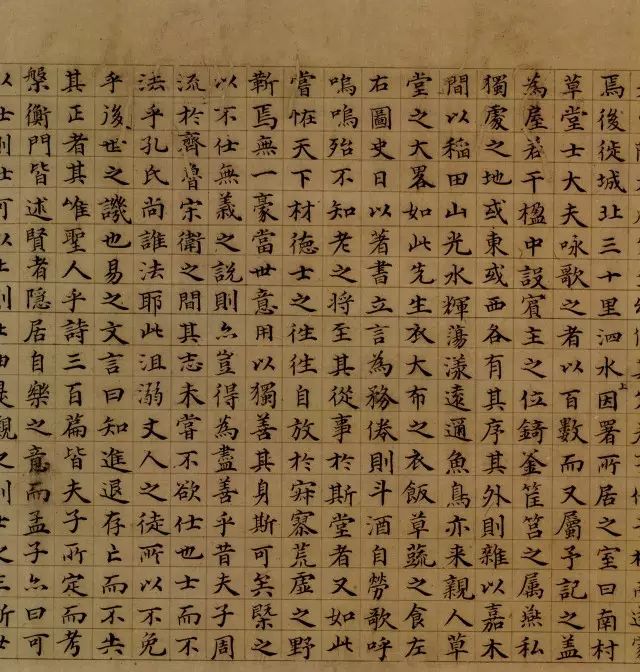 焉後徙城北三十里泗水上因署所居之室曰南村
草堂士大夫咏歌之者以百數而又屬予記之蓋
為屋若干楹中設賓主之位錡釜筐筥之屬燕私
獨處之地或東或西各有其序其外則雜以嘉木
間以稲田山光水輝蕩漾遠邇魚鳥亦来親人草
堂之大畧如此先生衣大布之衣飯草蔬之食左
右圖史日以著書立言為務倦則斗酒自勞歌呼
嗚嗚殆不知老之將至其從事於斯堂者又如此
嘗恠天下材徳士之徃徃自放於寂寥荒虛之野
靳焉無一豪當世意用以獨善其身斯可矣槩之
以不仕無義之說則亦豈得為盡善乎昔夫子周
流於齊魯宋衛之間其志未嘗不欲仕也士而不
法乎孔氏尚誰法耶此沮溺丈人之徒所以不免
乎後世之譏也易之文言曰知進退存亡而不失
其正者其唯聖人乎詩三百篇皆夫子所定而考
槃衡門皆述賢者隱居自樂之意而孟子亦曰可